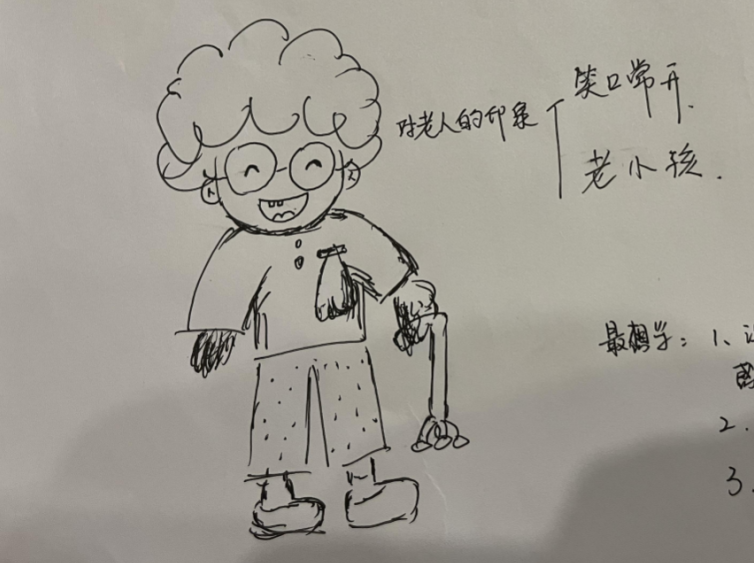 对老人的印象
笑口常开.
老小孩.
最想学: 1、
2.
3.